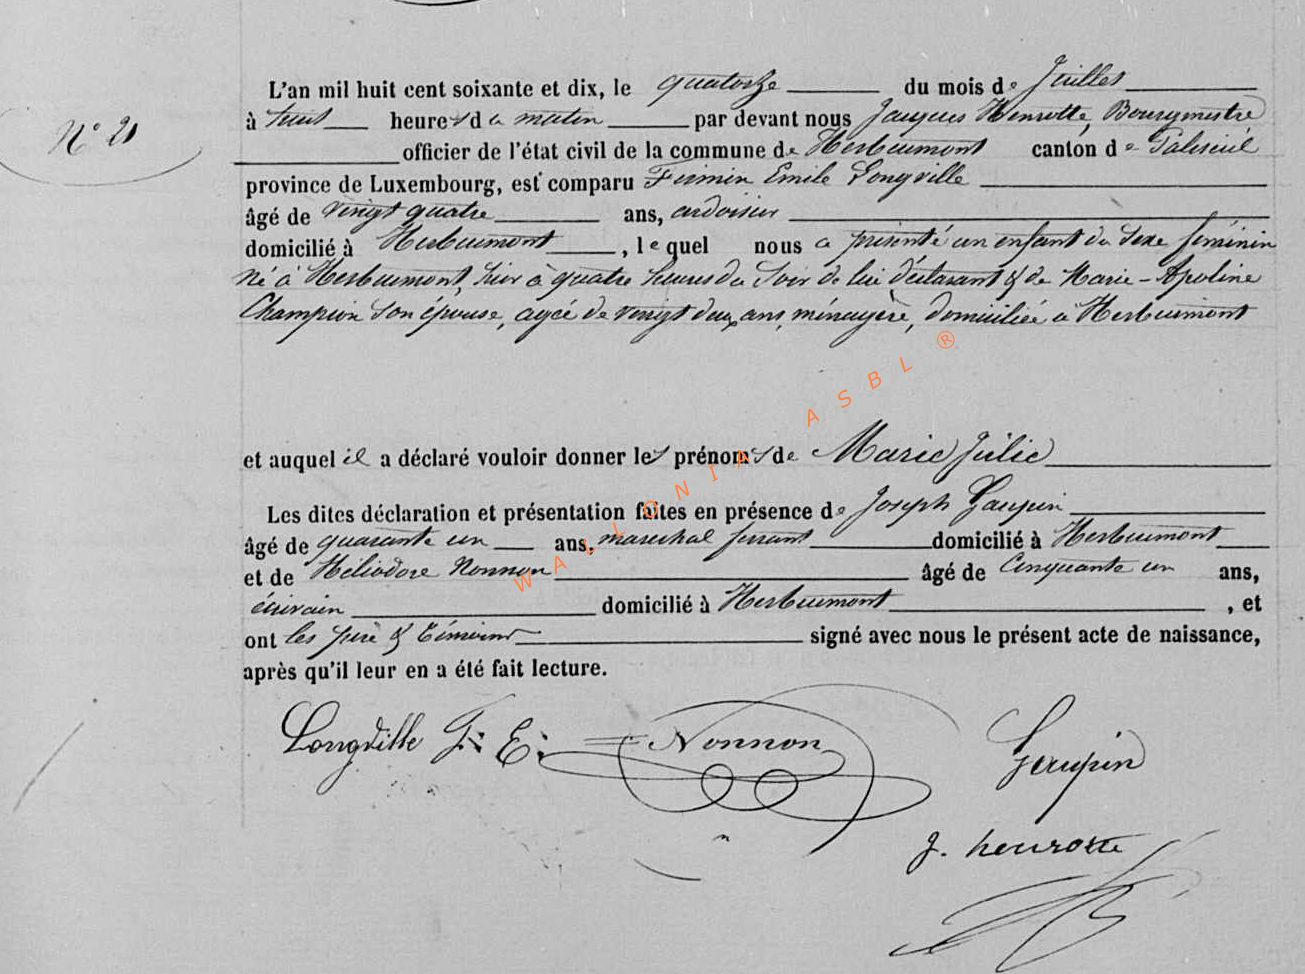 N° 21
L'an mil huit cent soixante et dix, le quatorze du mois de Juillet
à huit heures du matin par devant nous Jacques Henrotte, Bourgmestre
officier de l'état civil de la commune de Herbeumont canton de Paliseul
province de Luxembourg, est comparu Firmin Emile Longville
âgé de vingt quatre ans, ardoisier
domicilié à Herbeumont, lequel nous a présenté un enfant du Sexe féminin
né à Herbeumont, hier à quatre heures du Soir de lui déclarant & de Marie-Apoline
Champion son épouse, agée de vingt deux ans, ménagère, domiciliée à Herbeumont
et auquel il a déclaré vouloir donner les prénoms de Marie Julie
Les dites déclaration et présentation faites en présence de Joseph Gaupin
âgé de quarante un ans, marechal ferrant domicilié à Herbeumont
et de Héliodore Nonnon âgé de Cinquante un ans,
écrivain domicilié à Herbeumont, et
ont les père & témoins signé avec nous le présent acte de naissance,
après qu'il leur en a été fait lecture.
Longville F: E: Nonnon Gaupin
J. henrotte
WALLONIA ASBL ®